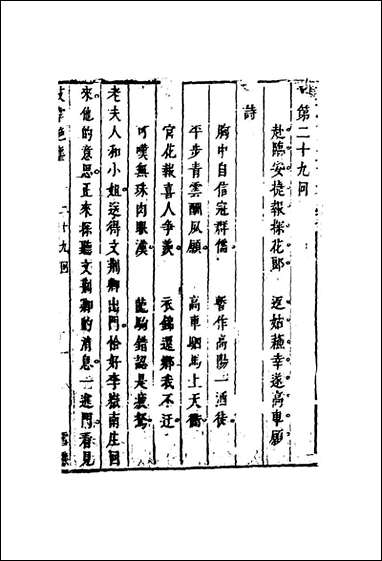 第二十九回
赴臨安捷報探花郎　返姑蘓幸遂高車願
詩
胸中自信冠群儒　暫作高陽一酒徒
平步青雲酬夙願　高車駟馬上天衢
宮花報喜人争羨　衣錦還鄉我不迂
可嘆無珠肉眼漢　龍駒錯認是疲駑
老夫人和小姐送得文荆卿出門恰好李嶽南庄回
來他的意思正來探聽文荆卿的消息一進門看見
二十九回